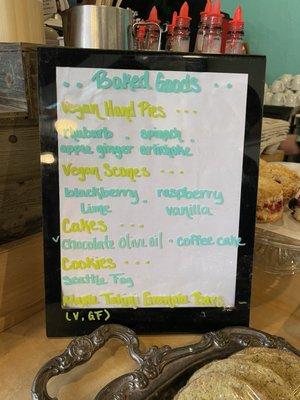 Baked Goods
Vegan Hand Pies
rhubarb spinach
apple ginger artichoke
Vegan Scones
blackberry raspberry
Lime vanilla
Cakes
chocolate olive oil · coffee cake
Cookies
Seattle Fog
Maple Tahini Granola Bars
(V, GF)